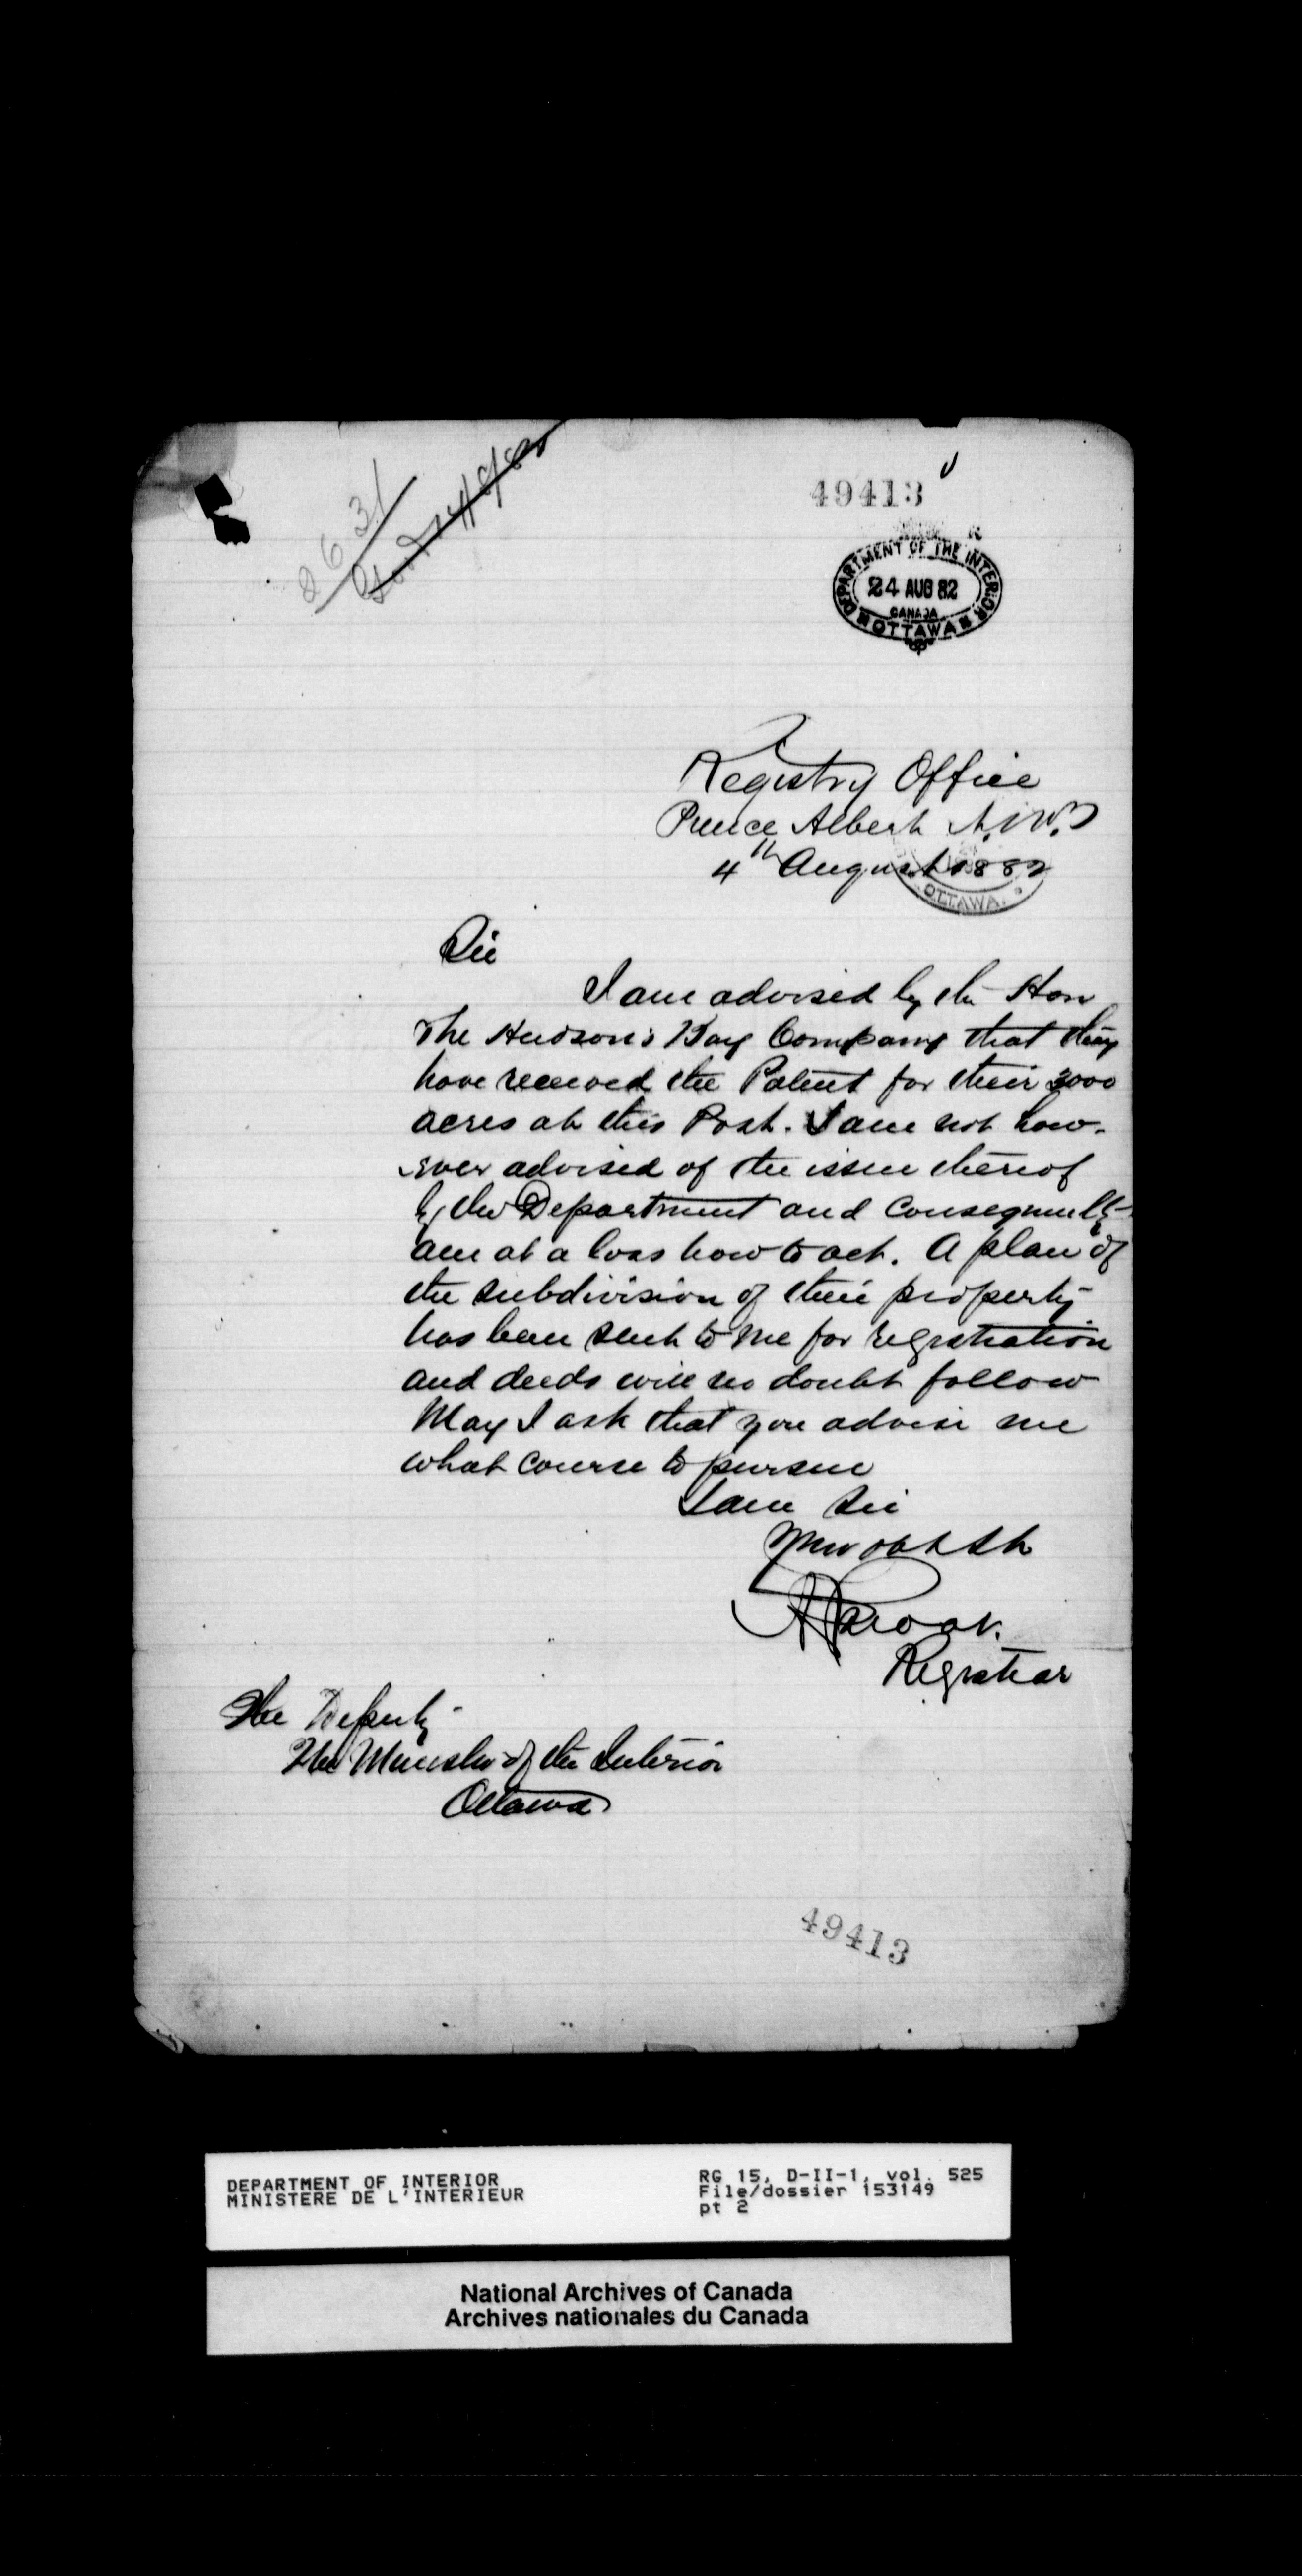 2631
49413
DEPARTMENT OF THE INTERIOR
24 AUG 82
CANADA
OTTAWA
Registry Office
Prince Albert N.W.T
4th August 1882
OTTAWA.
Sir
I am advised by the Hon
The Hudson's Bay Company that they
have received the Patent for their 3000
acres at this Post. I am not how-
ever advised of the issue thereof
by the Department and consequently
am at a loss how to act. A plan of
the subdivision of their property
has been sent to me for registration
and deeds will no doubt follow
May I ask that you advise me
what course to pursue
I am Sir
Your obt St
Registrar
The Deputy
The Minister of the Interior
Ottawa
49413
DEPARTMENT OF INTERIOR
MINISTERE DE L'INTERIEUR
RG 15, D-II-1, vol. 525
File/dossier 153149
pt 2
National Archives of Canada
Archives nationales du Canada